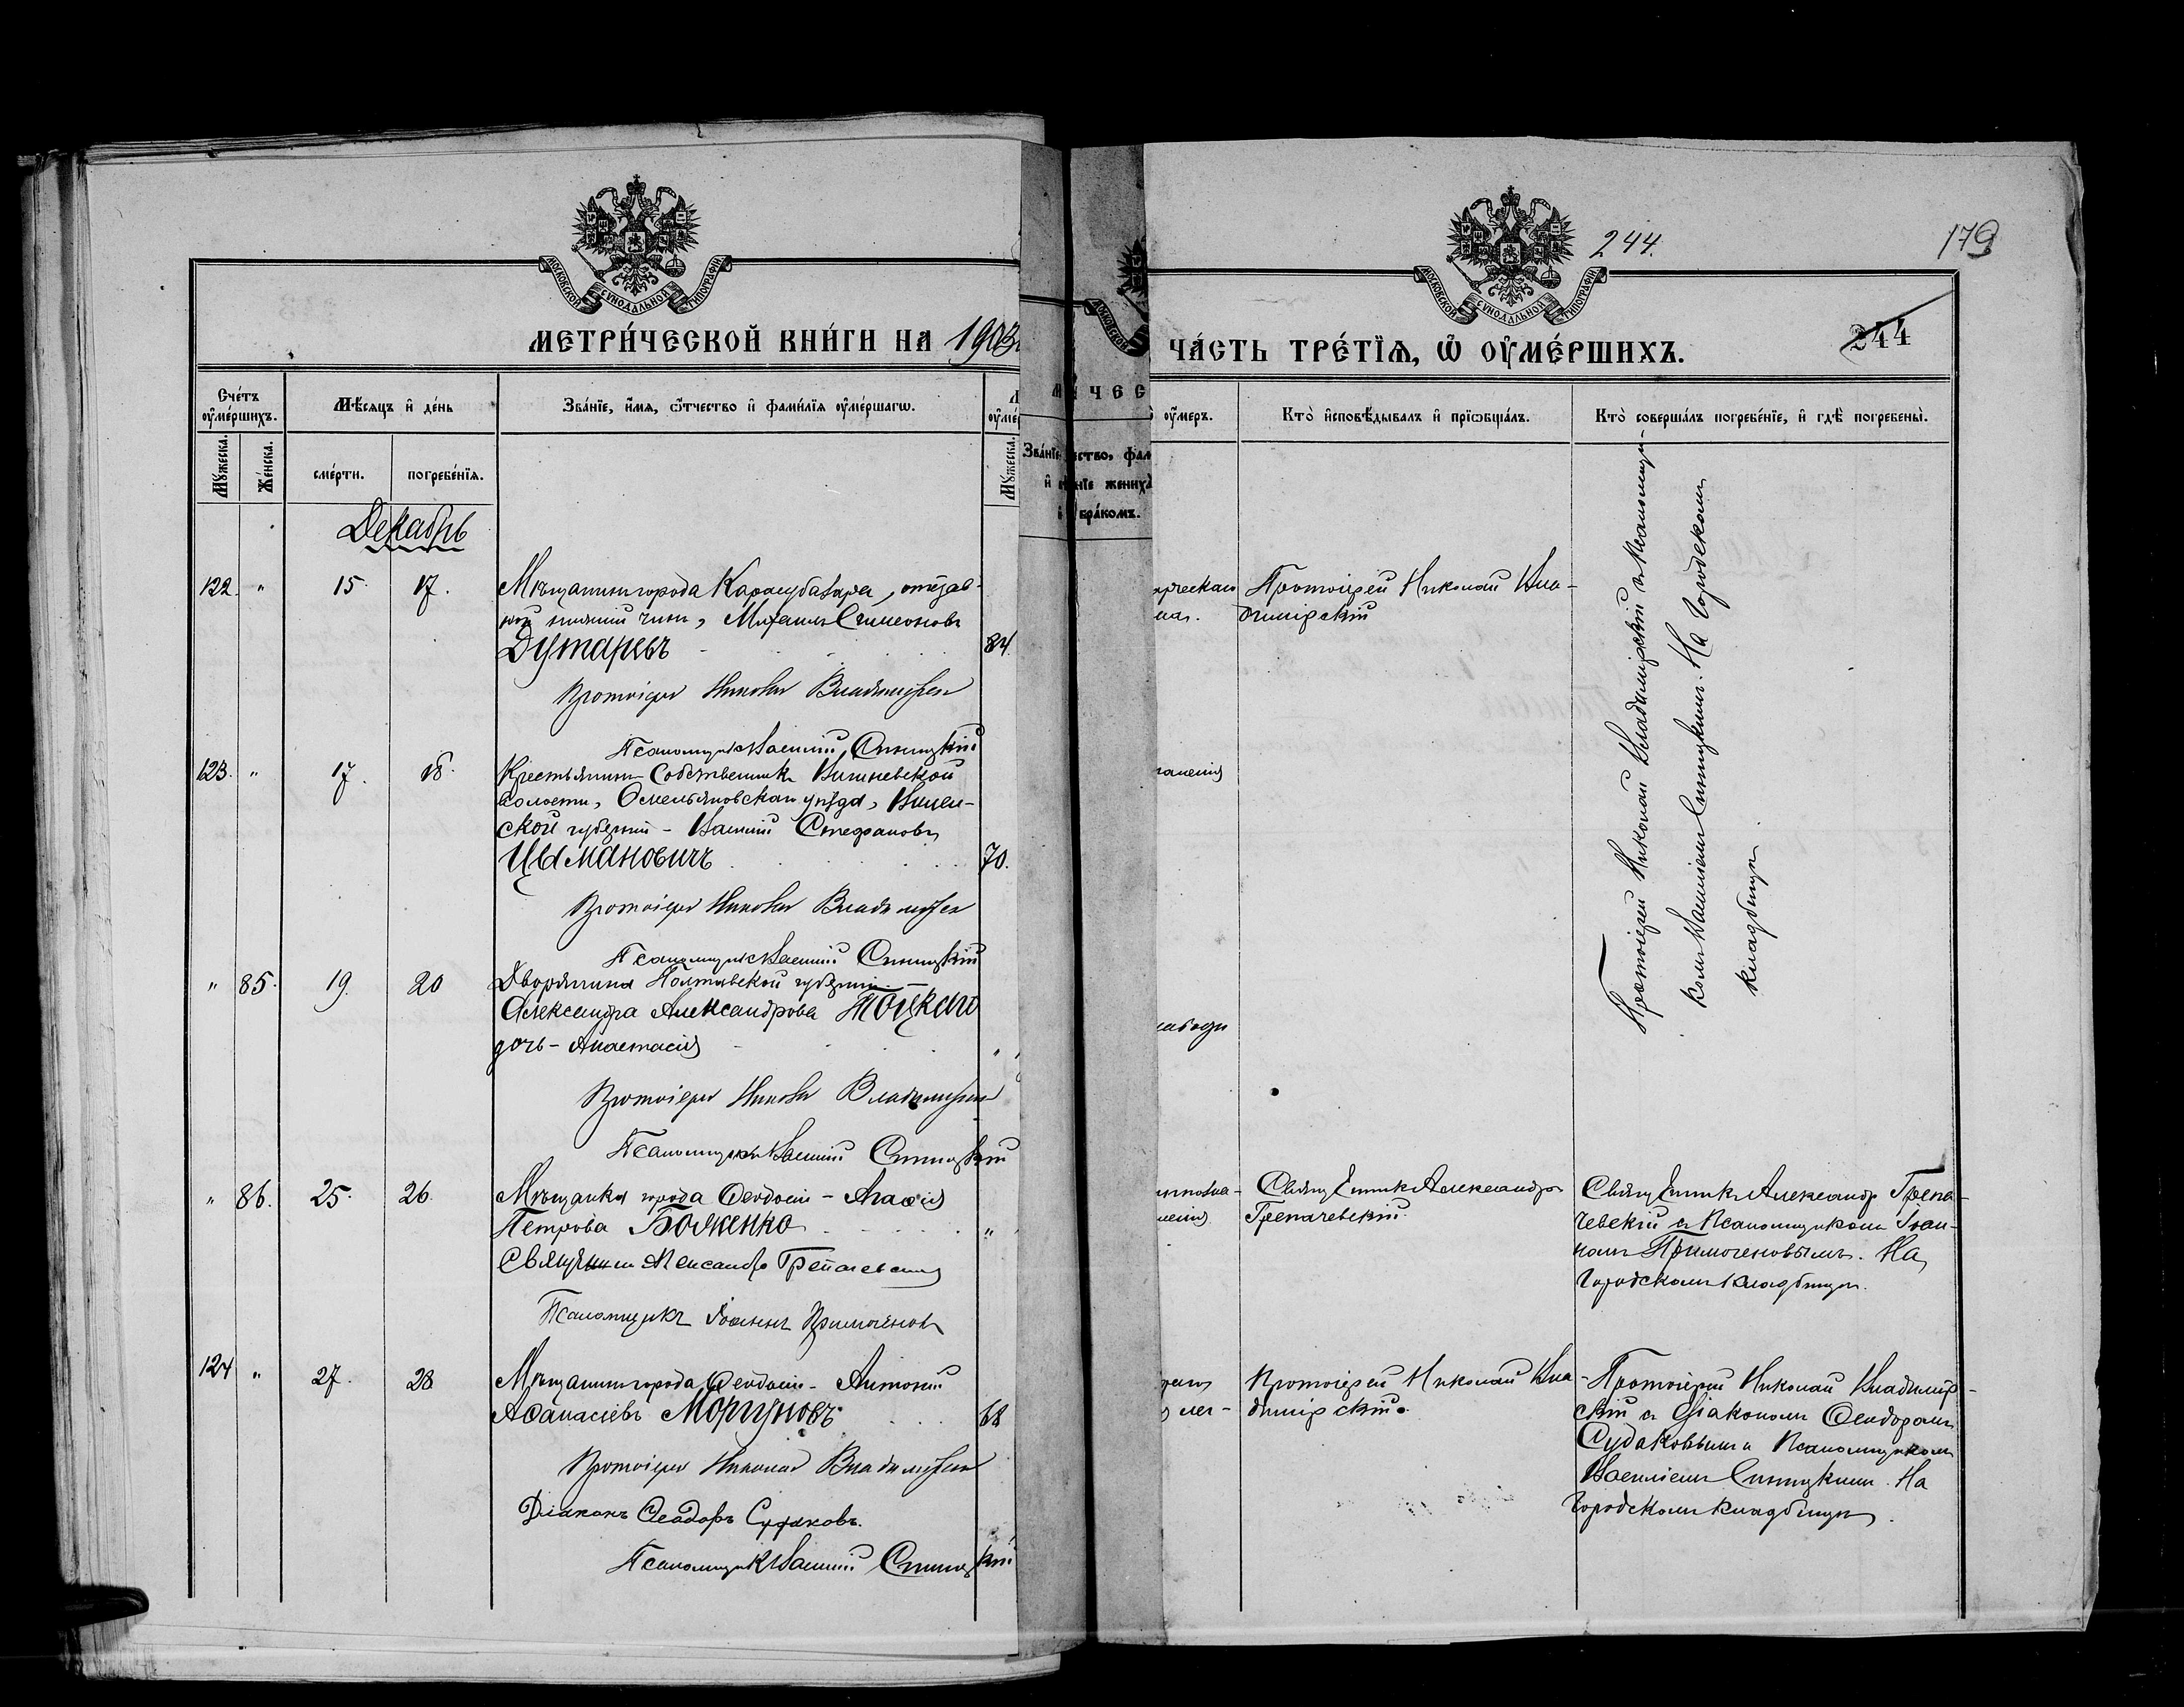 МОСКОВСКОЙ СѴНОДАЛЬНОЙ ТИПОГРАФІИ
МЕТРИ́ЧЕСКОЙ КНИ́ГИ НА 1903
Сче́тъ ᲂу҆ме́ршихъ.
Мѣ́сяцъ и҆ де́нь
Зва́нїе, и҆́мя, ѻ҆́тчество и҆ фами́лїя ᲂу҆ме́ршагѡ.
Мꙋ́жеска.
Же́нска.
сме́рти.
погребе́нїя.
Мꙋ́жеска.
Декабрь
122. " 15. 17. Мѣщанинъ города Карасубазара, отстав-
ной нижній чинъ, Михаилъ Симеоновъ
Дутаревъ 84.
Протоіерей Николай Владимірскій
Псаломщикъ Василій Синицкій
123. " 17. 18. Крестьянинъ-Собственникъ Вишневской
волости, Ошмянскаго уѣзда, Вилен-
ской губерніи - Василій Стефановъ
Цымановичъ 70.
Протоіерей Николай Владимірскій
Псаломщикъ Василій Синицкій
" 85. 19. 20 Дворянина Полтавской губерніи
Александра Александрова Тоцкаго
дочь - Анастасія "
Протоіерей Николай Владимірскій
Псаломщикъ Василій Синицкій
" 86. 25. 26. Мѣщанка города Ѳеодосіи - Агаѳія
Петрова Боженко "
Священникъ Александръ Трепачевскій
Псаломщикъ Іоаннъ Примоченовъ
124 " 27. 28 Мѣщанинъ города Ѳеодосіи - Антоній
Аѳанасіевъ Моргуновъ 68
Протоіерей Николай Владимірскій
Діаконъ Ѳеодоръ Судаковъ.
Псаломщикъ Василій Синицкій
244.
179
МОСКОВСКОЙ СѴНОДАЛЬНОЙ ТИПОГРАФІИ
ЧА́СТЬ ТРЕ́ТЇѦ, Ѡ҆ ОУ҆МЕ́РШИХЪ.
244
ᲂу҆́меръ.
Кто̀ и҆сповѣ́дывалъ и҆ прїѡбща́лъ.
Кто̀ соверша́лъ погребе́нїе, и҆ гдѣ̀ погребены̀.
Протоіерей Николай Вла-
димірскій
Протоіерей Николай Владимірскій съ псаломщи-
комъ Василіемъ Синицкимъ. На Городскомъ
кладбищѣ
Священникъ Александръ
Трепачевскій.
Священникъ Александръ Трепа-
чевскій съ псаломщикомъ Іоан-
номъ Примоченовымъ. На
Городскомъ кладбищѣ.
Протоіерей Николай Вла-
димірскій.
Протоіерей Николай Владимір-
скій съ Діакономъ Ѳеодоромъ
Судаковымъ и Псаломщикомъ
Василіемъ Синицкимъ. На
Городскомъ кладбищѣ.